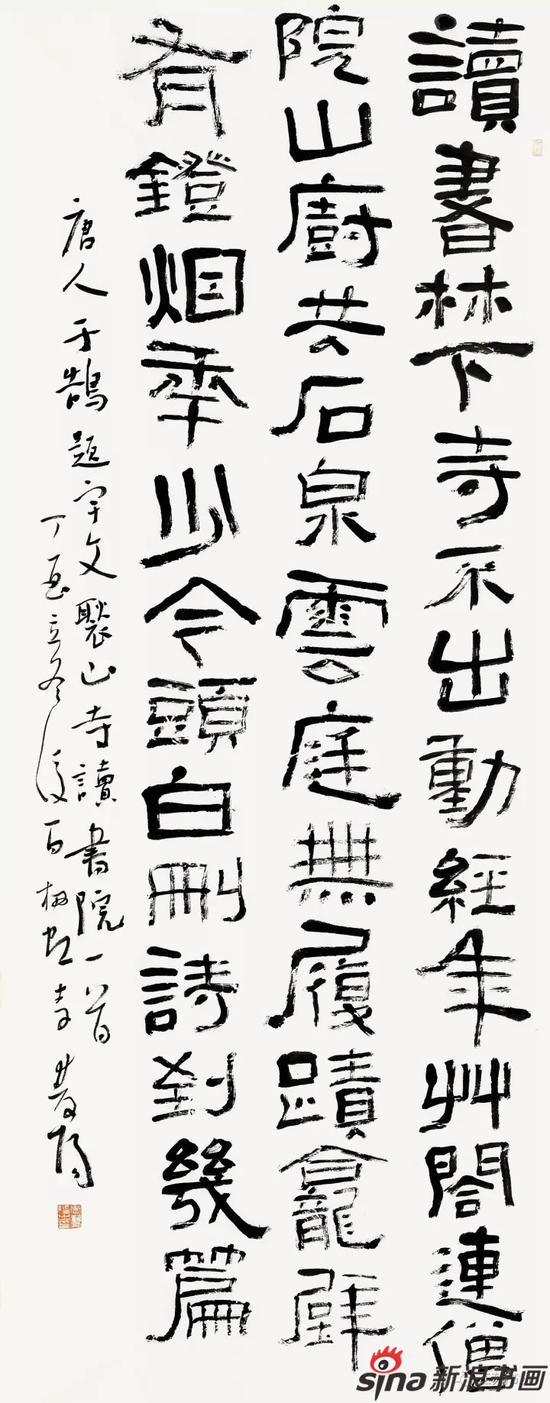 讀書林下寺不出動經年艸閤連僧
院山廚共石泉雲庭無履蹟龕壁
有鐙烟秊少今頭白刪詩到幾篇
唐人于鵠題宇文褧山寺讀書院一首
丁酉立冬後百
sina新浪书画